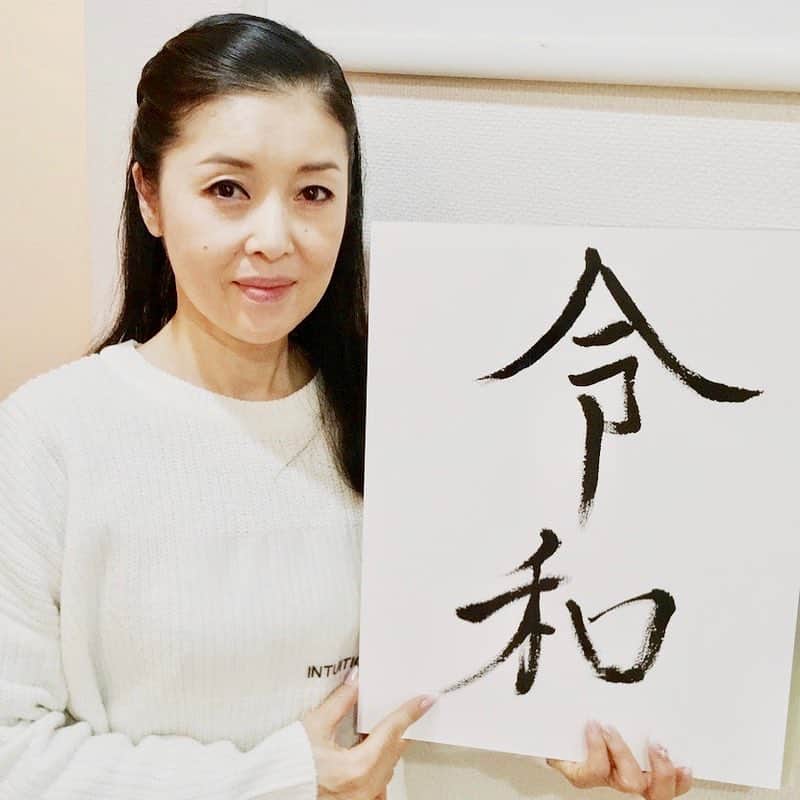 令
和
INTUITI